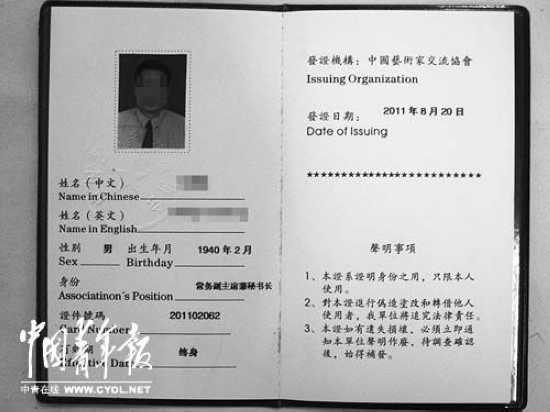 姓名（中文）
Name in Chinese
姓名（英文）
Name in English
性别 男 出生年月 1940年2月
Sex Birthday
身份 常务副主席兼秘书长
Associatinon's Position
證件號碼 201102062
Card Number
終身
Effective Date
中國青年报
中青在线 WWW.CYOL.NET
發證機構：中國藝術家交流協會
Issuing Organization
發證日期：2011年8月20日
Date of Issuing
**************************
聲明事項
1、本證系證明身份之用，只限本人
使用。
2、對本證進行偽造塗改和轉借他人
使用者，我單位將追究法律責任。
3、本證如有遺失損壞，必須立即通
知本單位聲明作廢，待調查確認
後，始得補發。